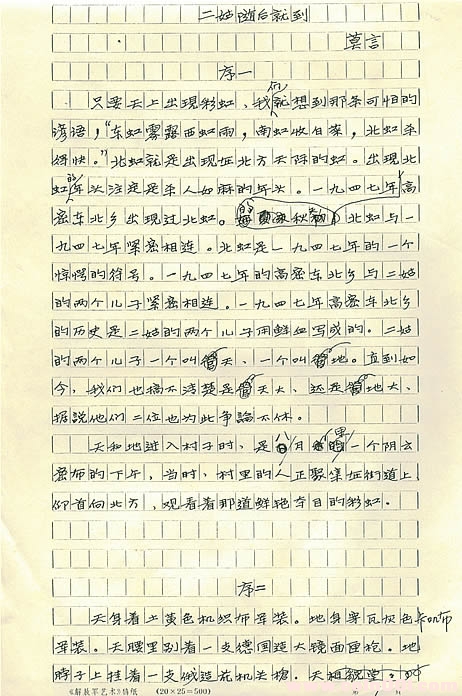 二姑随后就到
莫言
序一
只要天上出现彩虹，我们就想到那条可怕的
谚语，“东虹雾露西虹雨，南虹收白菜，北虹杀
得快。”北虹就是出现在北方天际的虹。出现北
虹的年头注定是杀人如麻的年头。一九四七年高
密东北乡出现过北虹。北虹与一
九四七年紧密相连。北虹是一九四七年的一个
惊愕的符号。一九四七年的高密东北乡与二姑
的两个儿子紧密相连。一九四七年高密东北乡
的历史是二姑的两个儿子用鲜血写成的。二姑
的两个儿子一个叫天，一个叫地。直到如
今，我们也搞不清楚是天大，还是地大，
据说他们二位也为此争论不休。
天和地进入村子时，是八月里的一个阴云
密布的下午，当时，村里的人正聚集在街道上
仰首向北方，观看着那道鲜艳夺目的彩虹。
序二
天身着土黄色机织布军装。地身穿瓦灰色卡叽布
军装。天腰里别着一支德国造大镜面匣枪。地
脖子上挂着一支
天和
《解放军艺术》稿纸 (20×25=500) 第 1 页